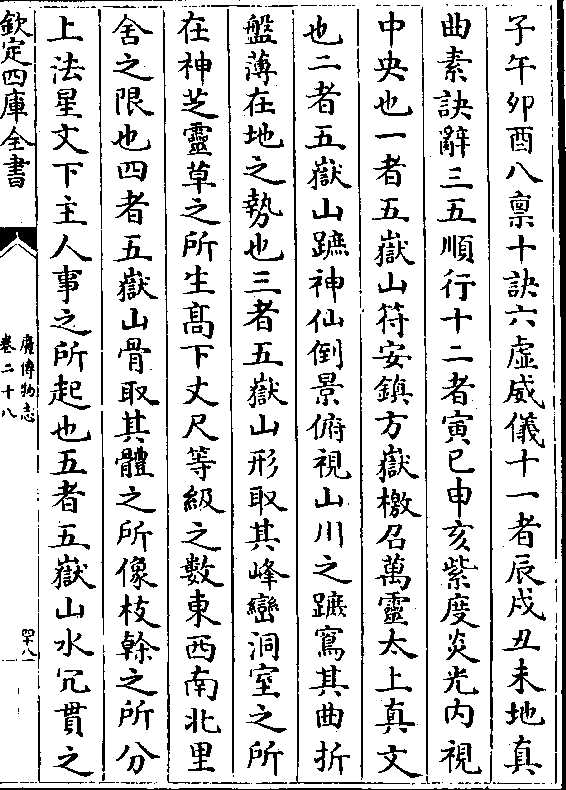 子午卯酉八禀十訣六虛威儀十一者辰戌丑未地真
曲素訣辭三五順行十二者寅巳申亥紫度炎光内視
中央也一者五嶽山符安鎮方嶽檄召萬靈太上真文
也二者五嶽山蹠神仙倒景俯視山川之蹠寫其曲折
盤薄在地之勢也三者五嶽山形取其峰巒洞室之所
在神芝靈草之所生髙下丈尺等級之數東西南北里
舍之限也四者五嶽山骨取其體之所像枝幹之所分
上法星文下主人事之所起也五者五嶽山水冗貫之
欽定四庫全書
廣博物志
卷二十八
四十八